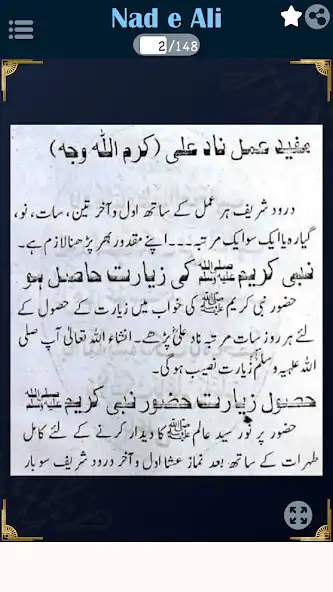 Nad e Ali
2/148
مفید عمل ناد علی (کرم اللہ وجہ)
درود شریف ہر عمل کے ساتھ اول و آخر تین، سات، نو،
گیارہ یا ایک سو ایک مرتبہ۔۔۔ اپنے مقدور بھر پڑھنا لازم ہے۔
نبی کریم ﷺ کی زیارت حاصل ہو
حضور نبی کریم ﷺ کی خواب میں زیارت کے حصول کے
لئے ہر روز سات مرتبہ ناد علیؑ پڑھے۔ انشاء اللہ تعالیٰ آپ صلی
اللہ علیہ وسلم زیارت نصیب ہوگی۔
حصول زیارت حضور نبی کریم ﷺ
حضور پر نور سید عالم ﷺ کا دیدار کرنے کے لئے کامل
طہرات کے ساتھ بعد نماز عشا اول و آخر درود شریف سو بار